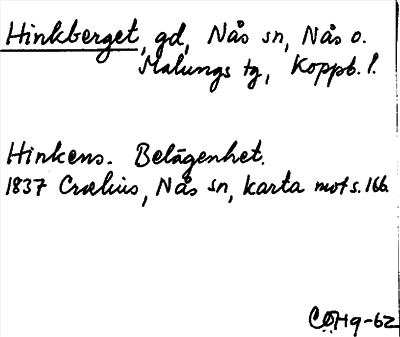 Hinkberget, gd, Nås sn, Nås o.
Malungs tg, Koppb. l.
Hinkens. Belägenhet.
1837 Crælius, Nås sn, karta mot s. 166.
CÖHq-62